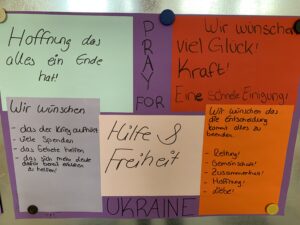 Hoffnung das
alles ein Ende
hat!
PRAY
FOR
Wir wünschen
viel Glück!
Kraft!
Eine schnelle Einigung!
Wir wünschen
- das der Krieg aufhört
- viele Spenden
- das Gebete helfen
- das sich mehr Leute
zu helfen!
Hilfe &
Freiheit
Wir wünschen das
die Entscheidung
kommt alles zu
beenden
- Rettung!
- Gemeinschaft!
- Zusammenhalt!
- Hoffnung!
- Liebe!
UKRAINE